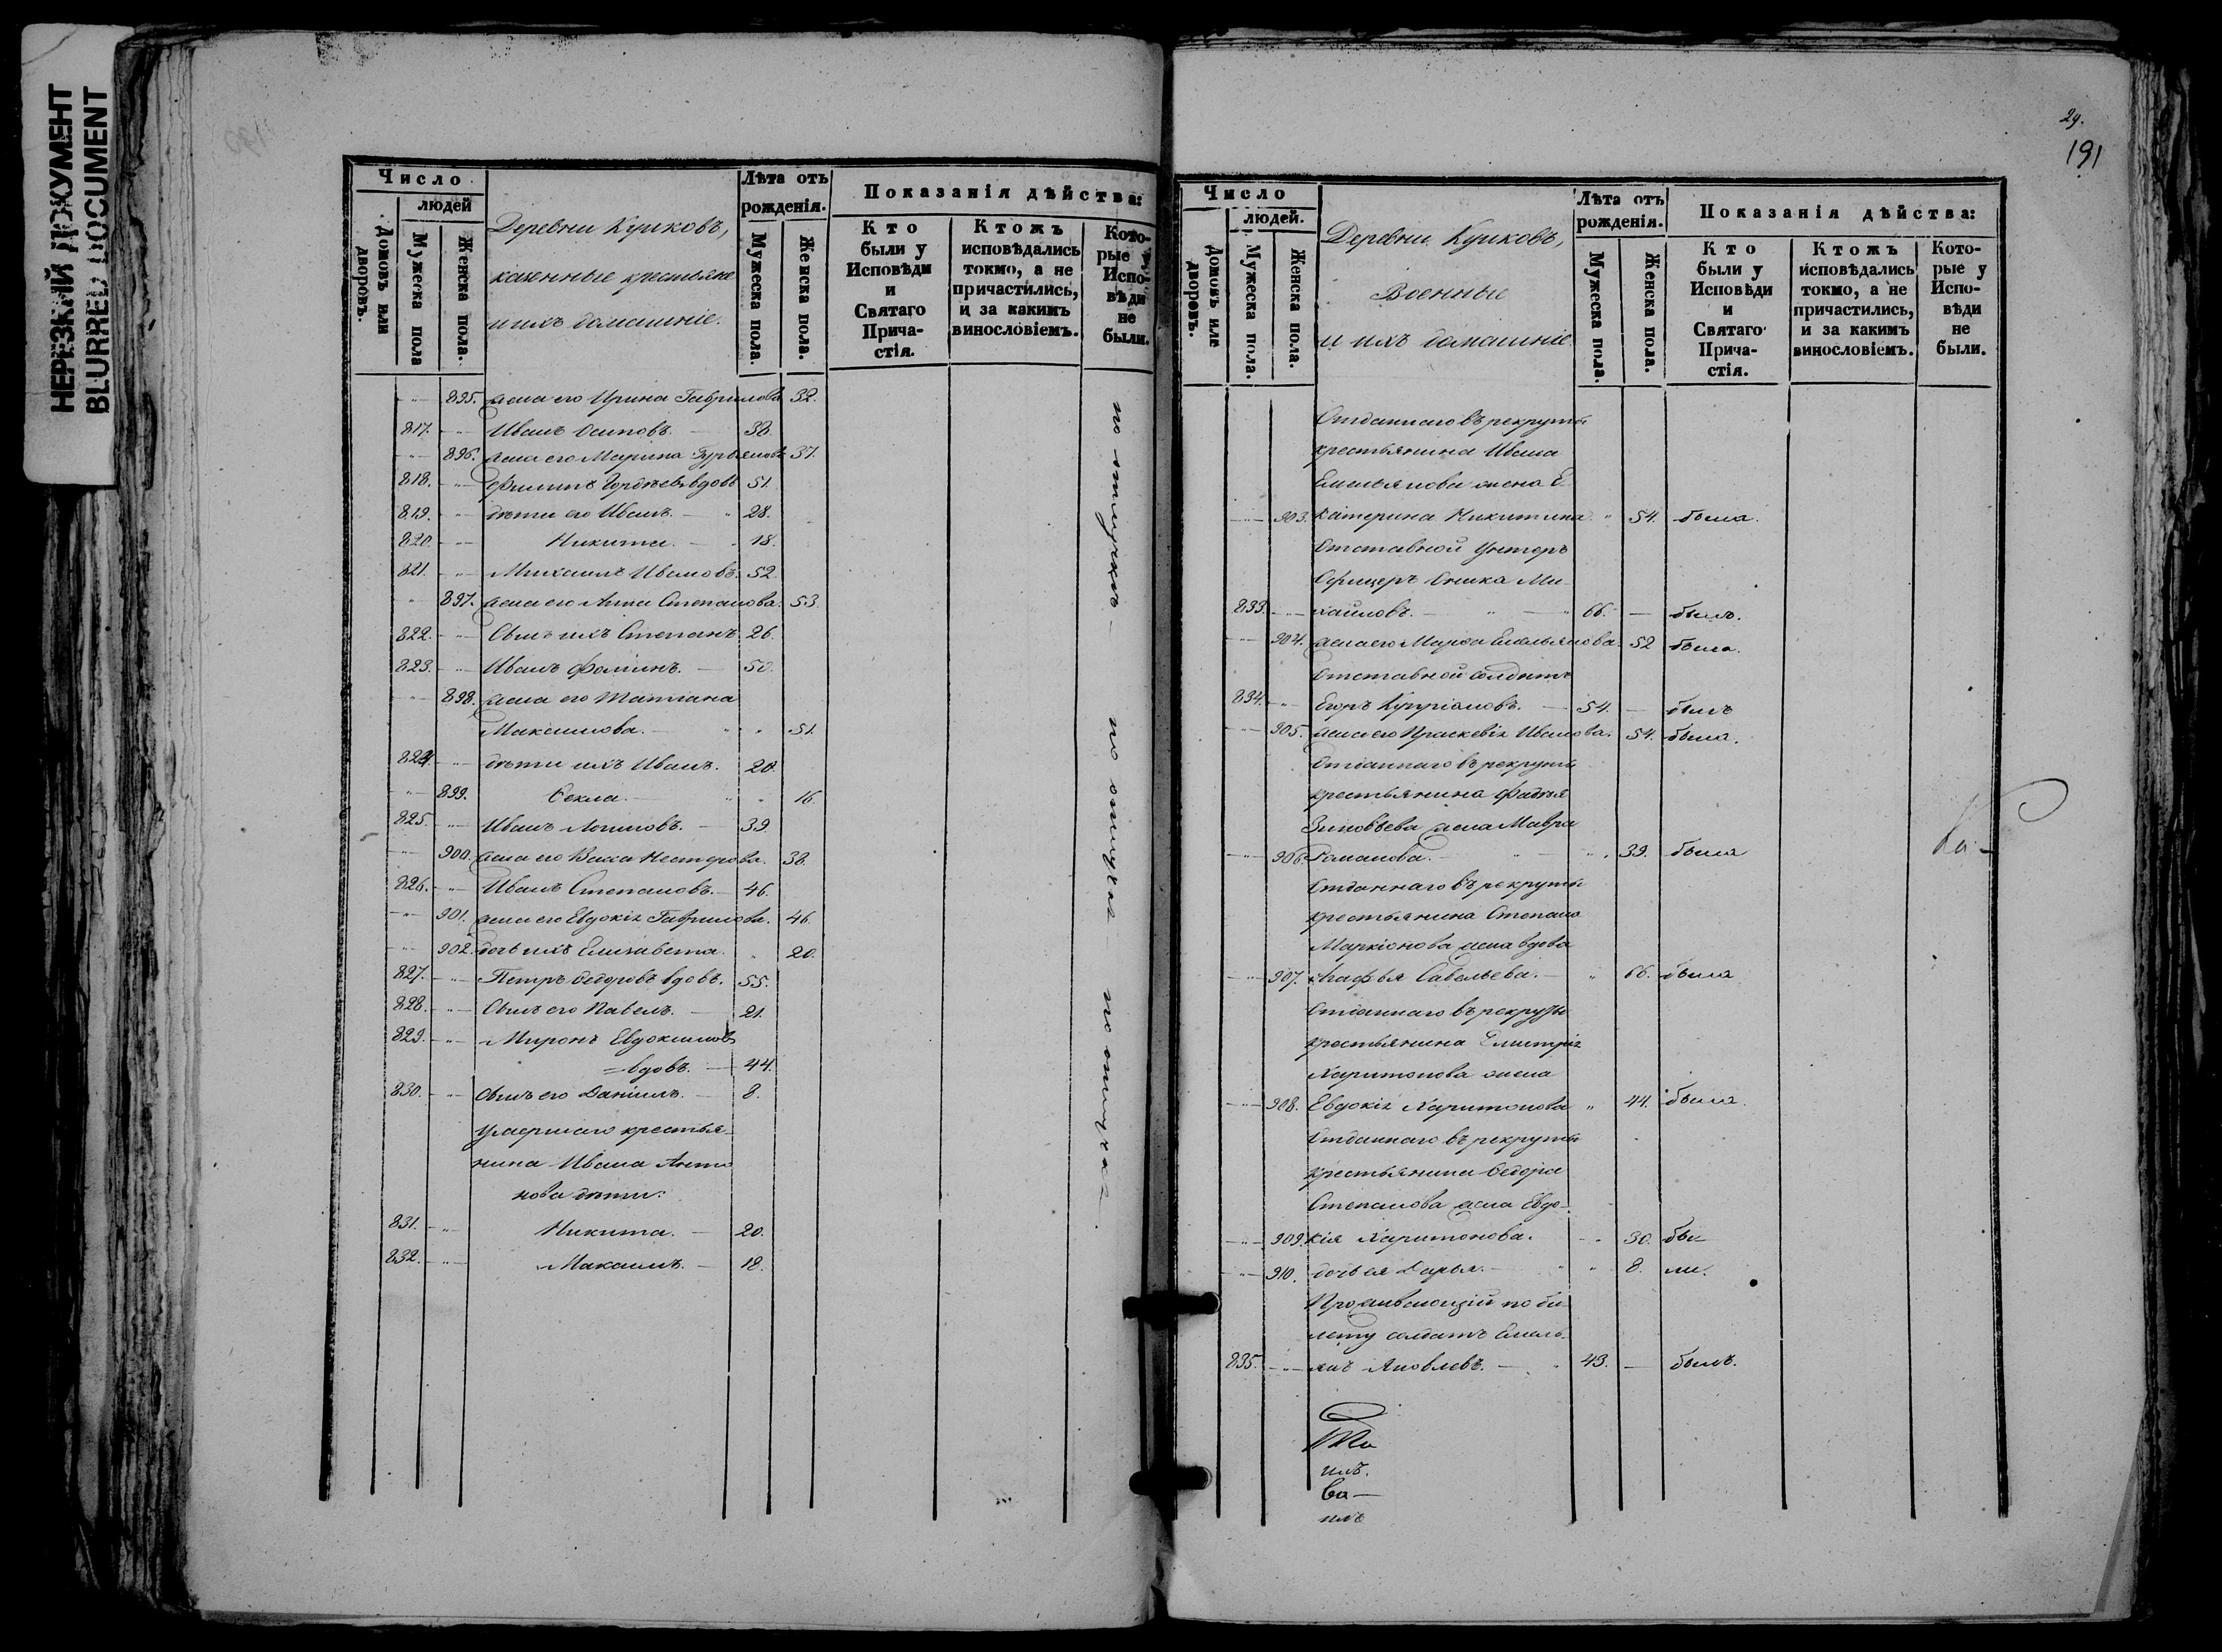 НЕРЕЗКИЙ ДОКУМЕНТ
BLURRED DOCUMENT
Число
людей
Домовъ или дворовъ.
Мужеска пола
Женска пола.
Деревни Куиковъ,
казенные крестьяне
и ихъ домашніе.
Лѣта отъ рожденія.
Мужеска пола.
Женска пола.
Показанія дѣйства:
Кто были у Исповѣди и Святаго Прича-стія.
Ктожъ исповѣдались токмо, а не причастились, и за какимъ винословіемъ.
Кото-рые у Испо-вѣди не были.
895. жена его Ирина Гаврилова 32.
817. Иванъ Осиповъ. 38.
896. жена его Марина Гурьянова 37.
818. Филиппъ Гордѣевъ вдовъ 51.
819. дѣти его Иванъ. 28.
820. Никита. 18.
821. Михаилъ Ивановъ. 52
897. жена его Анна Степанова. 53.
822. Сынъ ихъ Степанъ. 26.
823. Иванъ Фоминъ. 50.
898. жена его Татіана
Максимова. 51.
824. дѣти ихъ Иванъ. 20.
899. Ѳекла. 16.
825. Иванъ Логиновъ. 39.
900. жена его Васса Нестерова. 38.
826. Иванъ Степановъ. 46.
901. жена его Евдокія Гаврилова. 46.
902. дочь ихъ Елизавета. 20.
827. Петръ Ѳедоровъ вдовъ. 55.
828. Сынъ его Павелъ. 21.
829. Миронъ Евдокимовъ
вдовъ. 44.
830. Сынъ его Даніилъ. 8.
умершаго крестья-
нина Ивана Анто
нова дѣти:
831. Никита. 20.
832. Максимъ. 18.
по отлучкѣ - по отлучкѣ - по отлучкѣ.
29.
191
Число
людей.
Домовъ или дворовъ.
Мужеска пола.
Женска пола.
Деревни Куиковъ,
Военные
и ихъ домашніе
Лѣта отъ рожденія.
Мужеска пола.
Женска пола.
Показанія дѣйства:
Кто были у Исповѣди и Святаго Прича-стія.
Ктожъ исповѣдались токмо, а не причастились, и за какимъ винословіемъ.
Кото-рые у Испо-вѣди не были.
Отданнаго въ рекруты
крестьянина Ивана
Емельянова жена Е-
903. катерина Никитина 54. была.
Отставной Унтеръ
Офицеръ Ми-
833. хайловъ. 66. былъ.
904. жена его Марѳа Емельянова. 52 была.
Отставной солдатъ
834. Егоръ Купріановъ. 54. былъ
905. жена его Праскевія Иванова. 54. была.
Отданнаго въ рекруты
крестьянина Фадѣя
Зиновьева жена Мавра
906. Романова. 39. была
Отданнаго въ рекруты
крестьянина Степана
Маркіонова жена вдова
907. Агафья Савельева. 66. была
Отданнаго въ рекруты
крестьянина Димитрія
Харитонова жена
908. Евдокія Харитонова 44. была.
Отданнаго въ рекруты
крестьянина Ѳедора
Степанова жена Евдо-
909. кія Харитонова. 30. бы-
910. дочь ея Дарья. 8. ли.
Проживающій по би-
лету солдатъ Емель-
835. янъ Яковлевъ. 43. былъ.